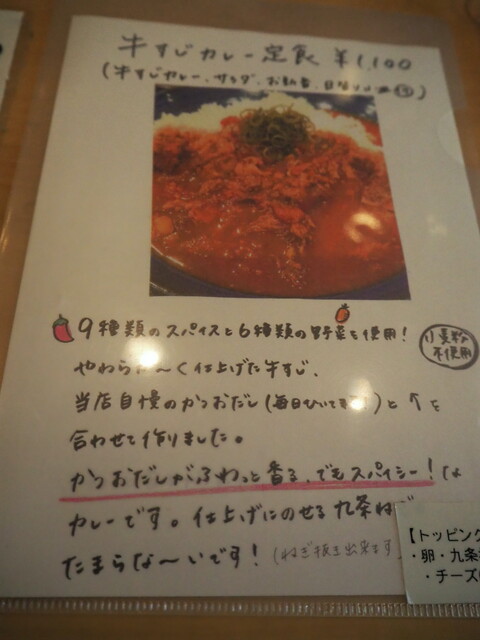 牛すじカレー定食 ¥1,100
(牛すじカレー、サラダ、お新香、
9種類のスパイスと6種類の野菜を使用!
小麦粉
不使用
やわらか〜く仕上げた牛すじ、
当店自慢のかつおだし(毎日ひいて)と↑を
合わせて作りました。
かつおだしがふわっと香る、でもスパイシー!な
カレーです。仕上げにのせる九条ねぎ
たまらな〜いです!(ねぎ抜き出来ます
【トッピング
・卵・九条
・チーズ